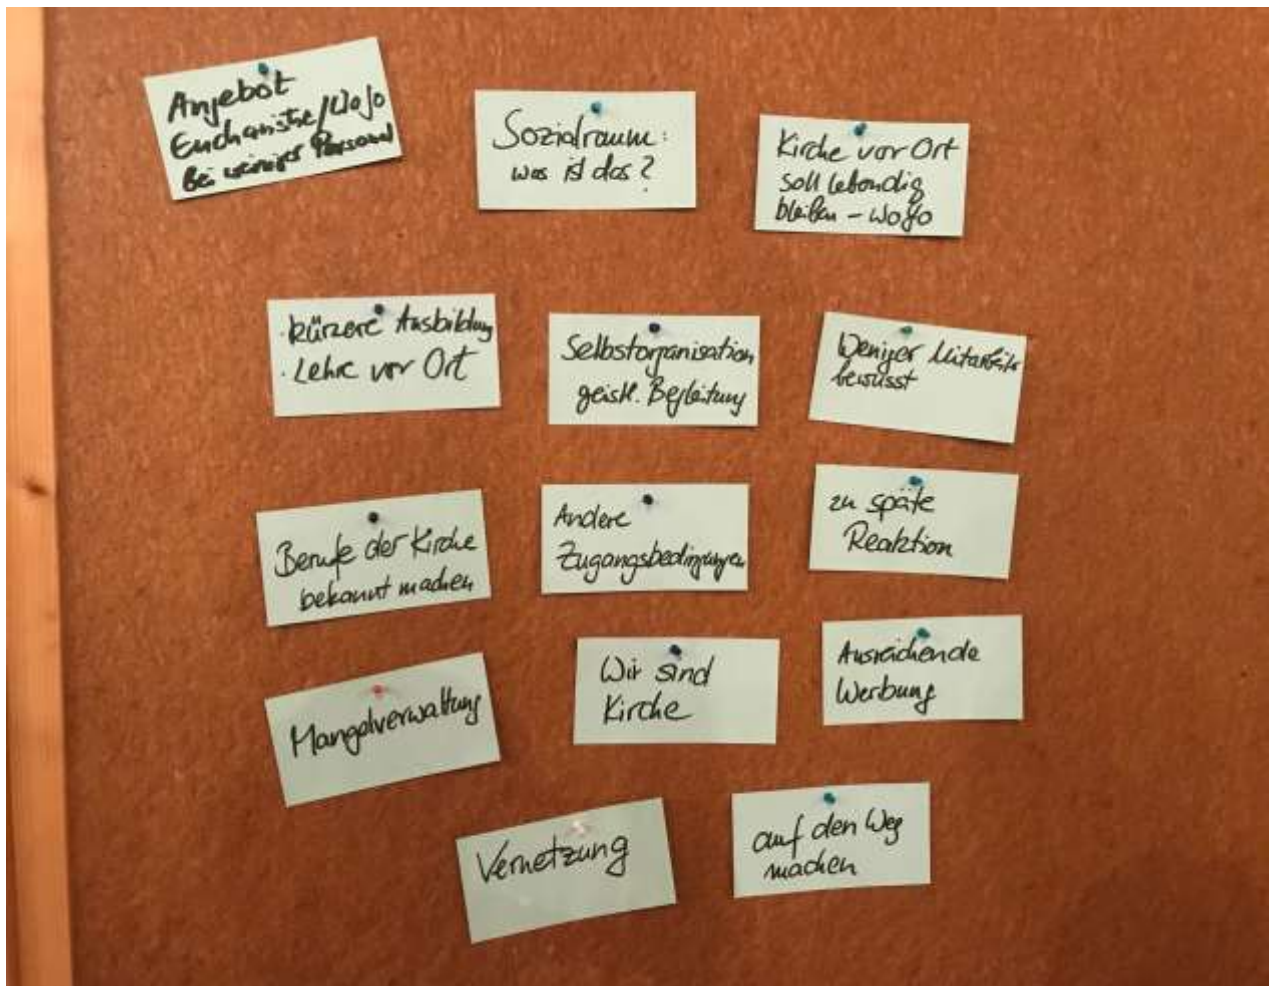 Angebot
Eucharistie/WoGo
Bei weniger Personal
Sozialraum:
was ist das?
Kirche vor Ort
soll lebendig
bleiben - WoGo
· kürzere Ausbildung
· Lehre vor Ort
Selbstorganisation
geistl. Begleitung
Weniger Mitarbeiter
bewusst
Berufe der Kirche
bekannt machen
Andere
Zugangsbedingungen
zu späte
Reaktion
Mangelverwaltung
Wir sind
Kirche
Ausreichende
Werbung
Vernetzung
auf den Weg
machen